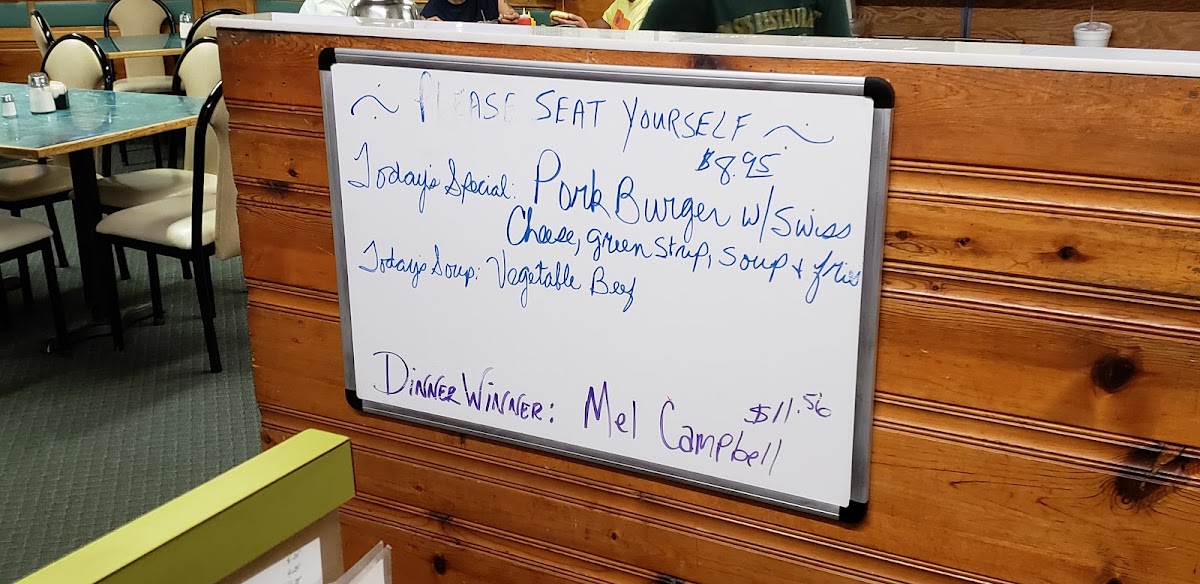 ~ PLEASE SEAT YOURSELF ~
$8.95
Today's Special: Pork Burger w/ Swiss
Cheese, green strip, soup + fries
Today's Soup: Vegetable Beef
Dinner Winner: Mel Campbell $11.56
RESTAURANT